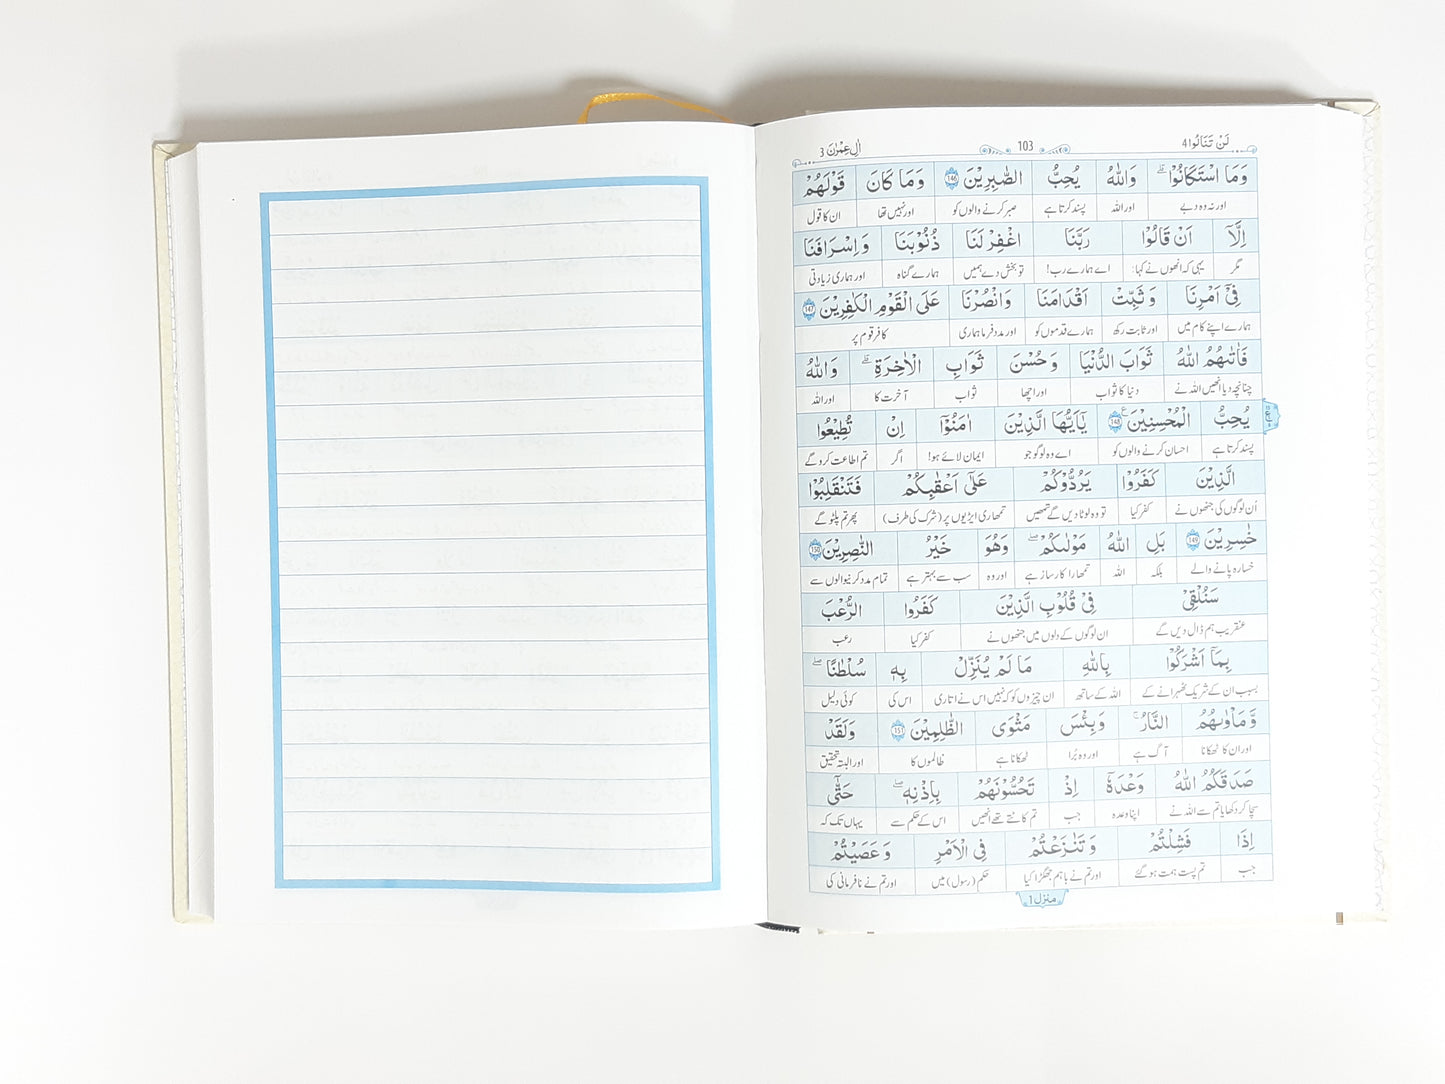 لَنْ تَنَالُوا 4
103
اٰلِ عِمْرٰن 3
وَمَا اسْتَكَانُوْا ؕ وَاللّٰهُ يُحِبُّ الصّٰبِرِيْنَ 146 وَمَا كَانَ قَوْلَهُمْ
اور نہ وہ دبے اور اللہ پسند کرتا ہے صبر کرنے والوں کو اور نہیں تھا ان کا قول
اِلَّاۤ اَنْ قَالُوْا رَبَّنَا اغْفِرْ لَنَا ذُنُوْبَنَا وَاِسْرَافَنَا
مگر یہی کہ انھوں نے کہا: اے ہمارے رب! تو بخش دے ہمیں ہمارے گناہ اور ہماری زیادتی
فِيْۤ اَمْرِنَا وَ ثَبِّتْ اَقْدَامَنَا وَانْصُرْنَا عَلَى الْقَوْمِ الْكٰفِرِيْنَ 147
ہمارے اپنے کام میں اور ثابت رکھ ہمارے قدموں کو اور مدد فرما ہماری کافر قوم پر
فَاٰتٰىهُمُ اللّٰهُ ثَوَابَ الدُّنْيَا وَ حُسْنَ ثَوَابِ الْاٰخِرَةِ ؕ وَاللّٰهُ
چنانچہ دیا انھیں اللہ نے دنیا کا ثواب اور اچھا ثواب آخرت کا اور اللہ
يُحِبُّ الْمُحْسِنِيْنَ 148 يٰۤاَيُّهَا الَّذِيْنَ اٰمَنُوْۤا اِنْ تُطِيْعُوا
پسند کرتا ہے احسان کرنے والوں کو اے وہ لوگو جو ایمان لائے ہو! اگر تم اطاعت کرو گے
الَّذِيْنَ كَفَرُوْا يَرُدُّوْكُمْ عَلٰۤى اَعْقَابِكُمْ فَتَنْقَلِبُوْا
اُن لوگوں کی جنھوں نے کفر کیا تو وہ لوٹا دیں گے تمھیں تمھاری ایڑیوں پر (شرک کی طرف) پھر تم پلٹو گے
خٰسِرِيْنَ 149 بَلِ اللّٰهُ مَوْلٰىكُمْ ۚ وَهُوَ خَيْرُ النّٰصِرِيْنَ 150
خسارہ پانے والے بلکہ اللہ تمھارا کارساز ہے اور وہ سب سے بہتر ہے تمام مدد کرنیوالوں سے
سَنُلْقِيْ فِيْ قُلُوْبِ الَّذِيْنَ كَفَرُوا الرُّعْبَ
عنقریب ہم ڈال دیں گے ان لوگوں کے دلوں میں جنھوں نے کفر کیا رعب
بِمَاۤ اَشْرَكُوْا بِاللّٰهِ مَا لَمْ يُنَزِّلْ بِهٖ سُلْطٰنًا ۚ
بسبب ان کے شریک ٹھہرانے کے اللہ کے ساتھ ان چیزوں کو کہ نہیں اس نے اتاری اس کی کوئی دلیل
وَ مَاْوٰىهُمُ النَّارُ ؕ وَ بِئْسَ مَثْوَى الظّٰلِمِيْنَ 151 وَلَقَدْ
اور ان کا ٹھکانا آگ ہے اور وہ بُرا ٹھکانا ہے ظالموں کا اور البتہ تحقیق
صَدَقَكُمُ اللّٰهُ وَعْدَهٗۤ اِذْ تَحُسُّوْنَهُمْ بِاِذْنِهٖ ۚ حَتّٰۤى
سچا کر دکھایا تم سے اللہ نے اپنا وعدہ جب تم کاٹتے تھے انھیں اس کے حکم سے یہاں تک کہ
اِذَا فَشِلْتُمْ وَ تَنَازَعْتُمْ فِي الْاَمْرِ وَ عَصَيْتُمْ
جب تم پست ہمت ہو گئے اور تم نے باہم جھگڑا کیا حکم (رسول) میں اور تم نے نافرمانی کی
منزل 1